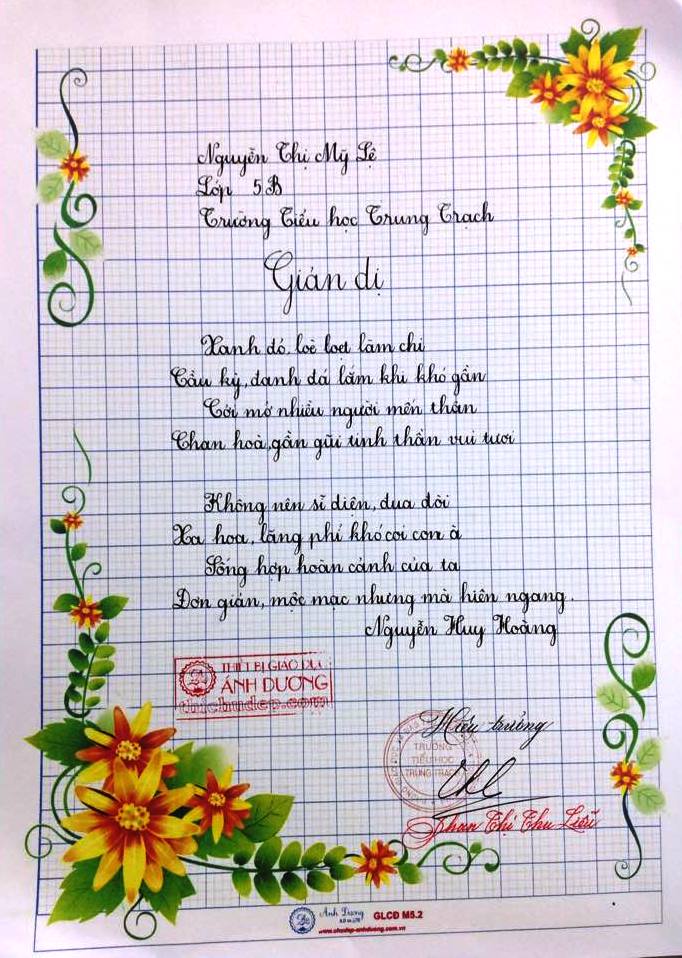 Nguyễn Thị Mỹ Lệ
Lớp 5B
Trường Tiểu học Trung Trạch
Giản dị
Xanh đỏ, loè loẹt làm chi
Cầu kỳ, đanh đá lắm khi khó gần
Cởi mở nhiều người mến thân
Chan hoà, gần gũi tinh thần vui tươi
Không nên sĩ diện, đua đòi
Xa hoa, lãng phí khó coi con à
Sống hợp hoàn cảnh của ta
Đơn giản, mộc mạc nhưng mà hiên ngang.
Nguyễn Huy Hoàng
THIẾT BỊ GIÁO DỤC
ÁNH DƯƠNG
thichudep.com
Hiệu trưởng
TRƯỜNG
TIỂU HỌC
TRUNG TRẠCH
Phan Thị Thu Liễu
Ánh Dương
GLCD M5.2
www.chudep-anhduong.com.vn